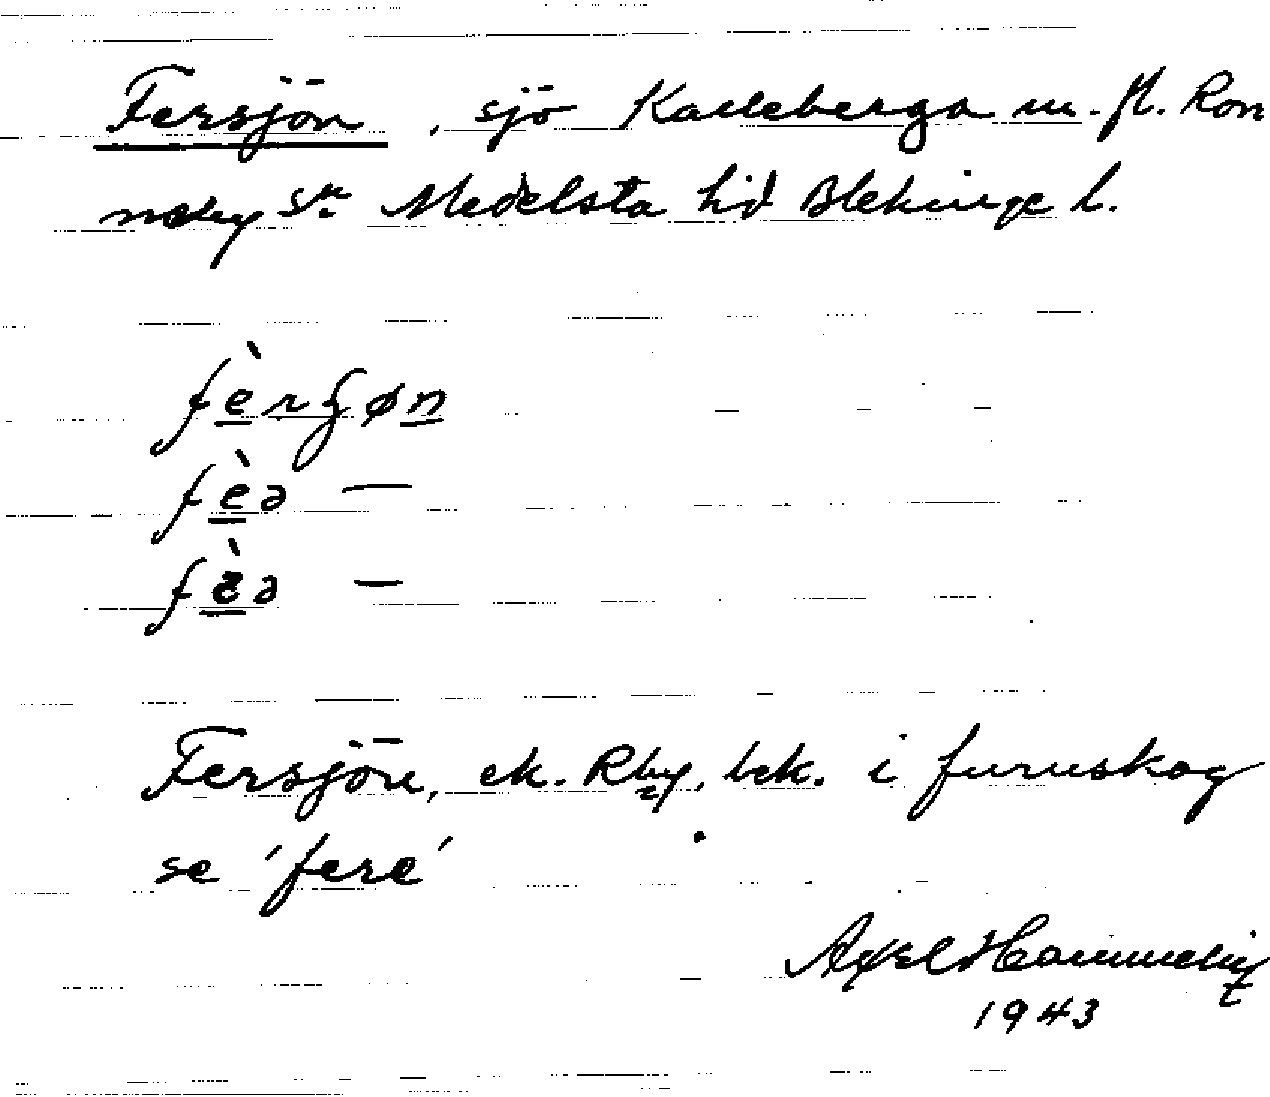 Fersjön, sjö Kalleberga m. fl. Ron
neby sn Medelsta hd Blekinge l.
fèrʃøn
fèə —
fæ̀ə —
Fersjön, ek. Rby, bek. i furuskog
se 'fere'
Axel
1943